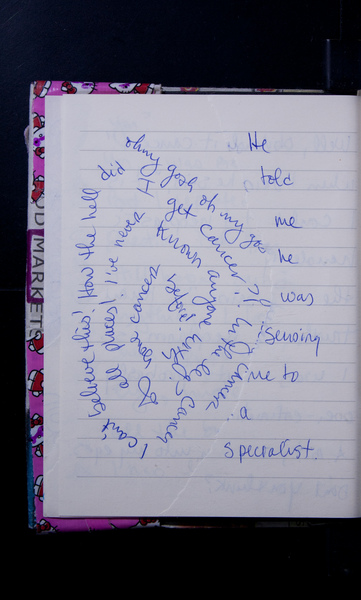 He
told
me
he
was
sending
me to
a
specialist.
I can't believe this! How the hell did
I get cancer?! In the leg
all places! I've never
known anyone with cancer
before!
oh my gosh oh my gosh
bone cancer
D MARKETS